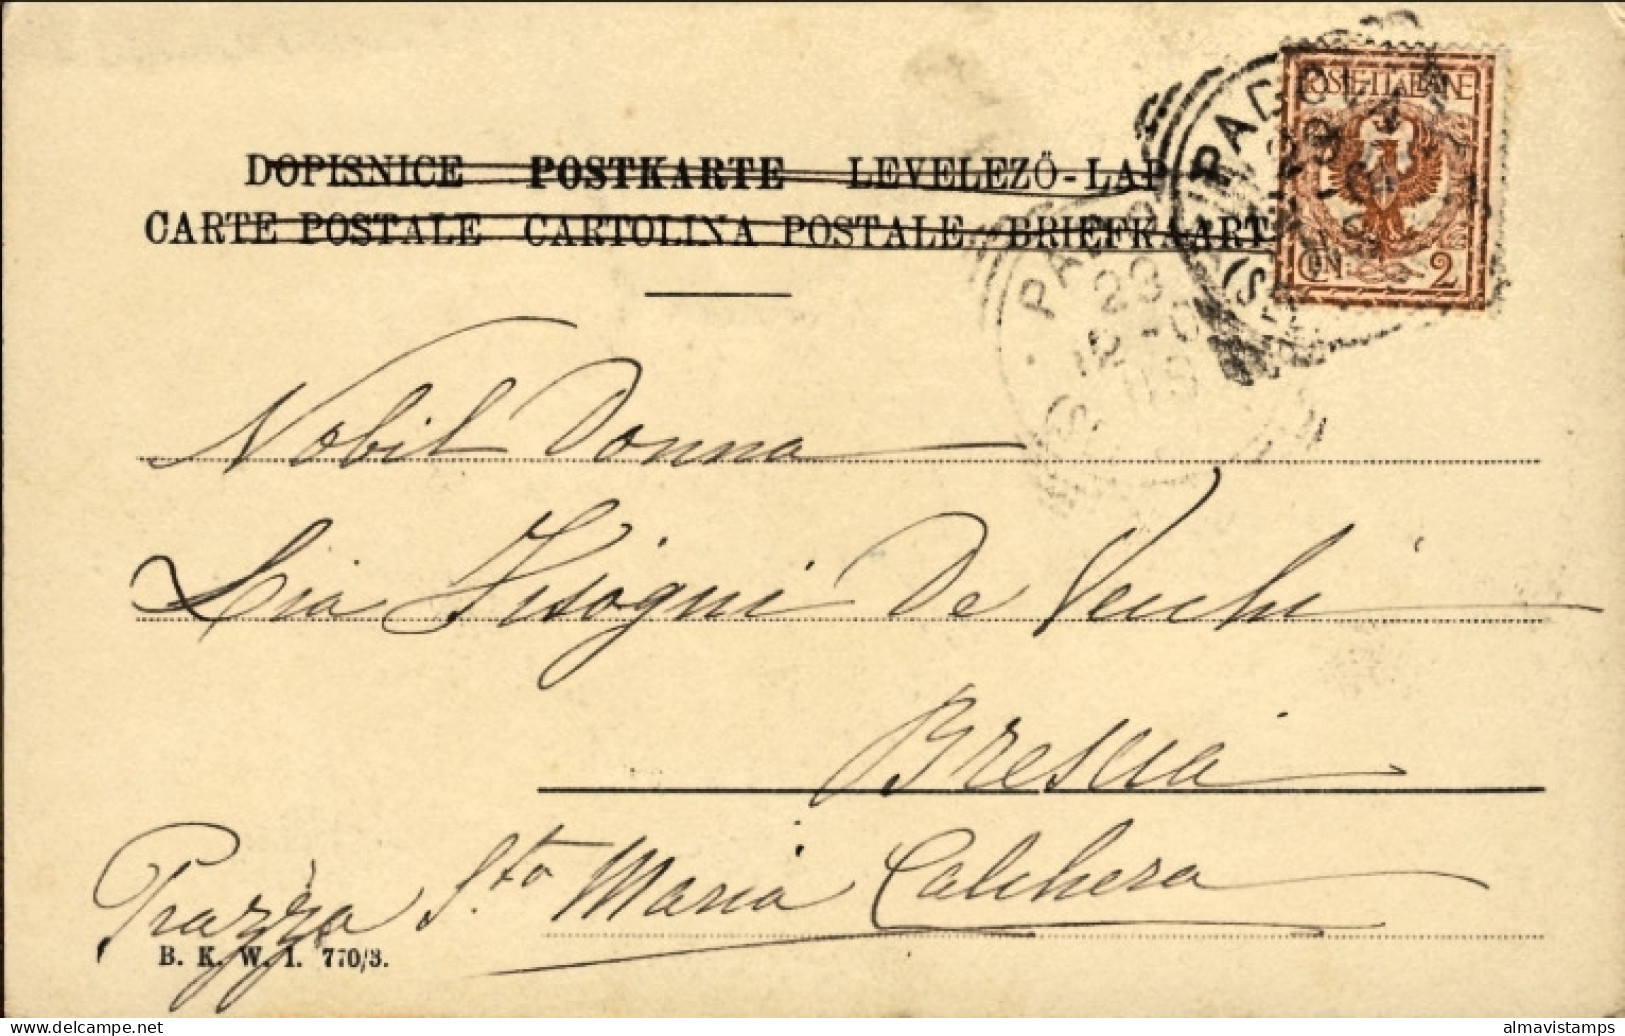 DOPISNICE POSTKARTE LEVELEZŐ-LAP
CARTE POSTALE CARTOLINA POSTALE BRIEFKAART
POSTE-ITALIANE
CEN. 2
PADOVA
PADO
23
12
Nobil Donna
Lia Fisogni De Vecchi
Brescia
Piazza S.ta Maria Calchera
B. K. W. I. 770/3.
almavistamps